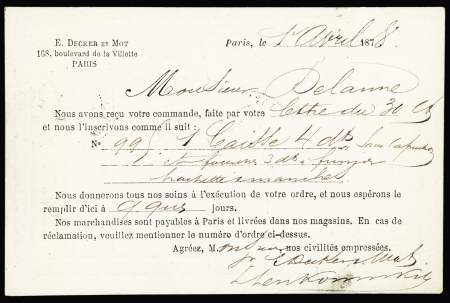 E. DECKER ET MOT
168, boulevard de la Villette
PARIS
Paris, le 1er Avril 1878
Monsieur Delanne
Nous avons reçu votre commande, faite par votre lettre du 30 Ct
et nous l'inscrivons comme il suit :
No 995 1 Caisse 4 dz
et 3 dz
hachette emanchées
Nous donnerons tous nos soins à l'exécution de votre ordre, et nous espérons le
remplir d'ici à qques jours.
Nos marchandises sont payables à Paris et livrées dans nos magasins. En cas de
réclamation, veuillez mentionner le numéro d'ordre ci-dessus.
Agréez, M onsieur nos civilités empressées.
pr E Decker & Mot